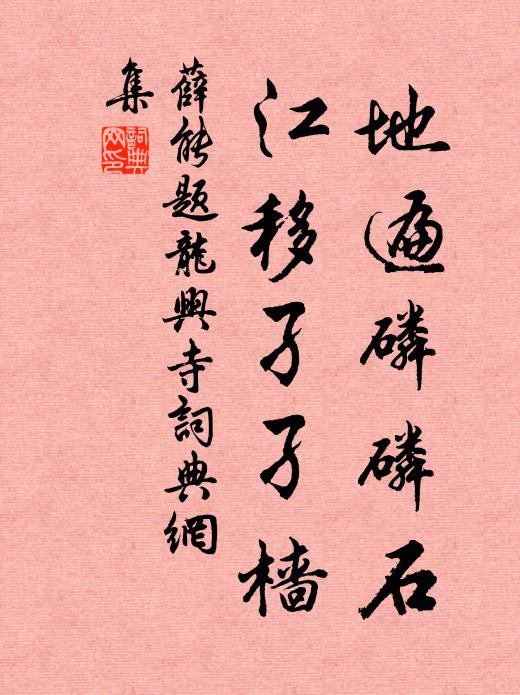 地遍磷磷石
江移孑孑檣
薛能題龍興寺詞典網
集
詞典網印